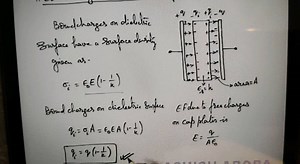 Bound charges on dielectric
surface have a surface density
given as -
σi = ε₀E(1 - 1/k)
+q -qi +qi -q
εr = k
area = A
Bound charges on dielectric surface
qi = σi A = ε₀EA(1 - 1/k)
qi = q(1 - 1/k)
EF due to free charges
on cap plates is
E = q/Aε₀